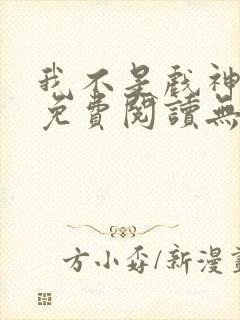 我不是戲神
免費閱讀無
方小孬/新漫畫